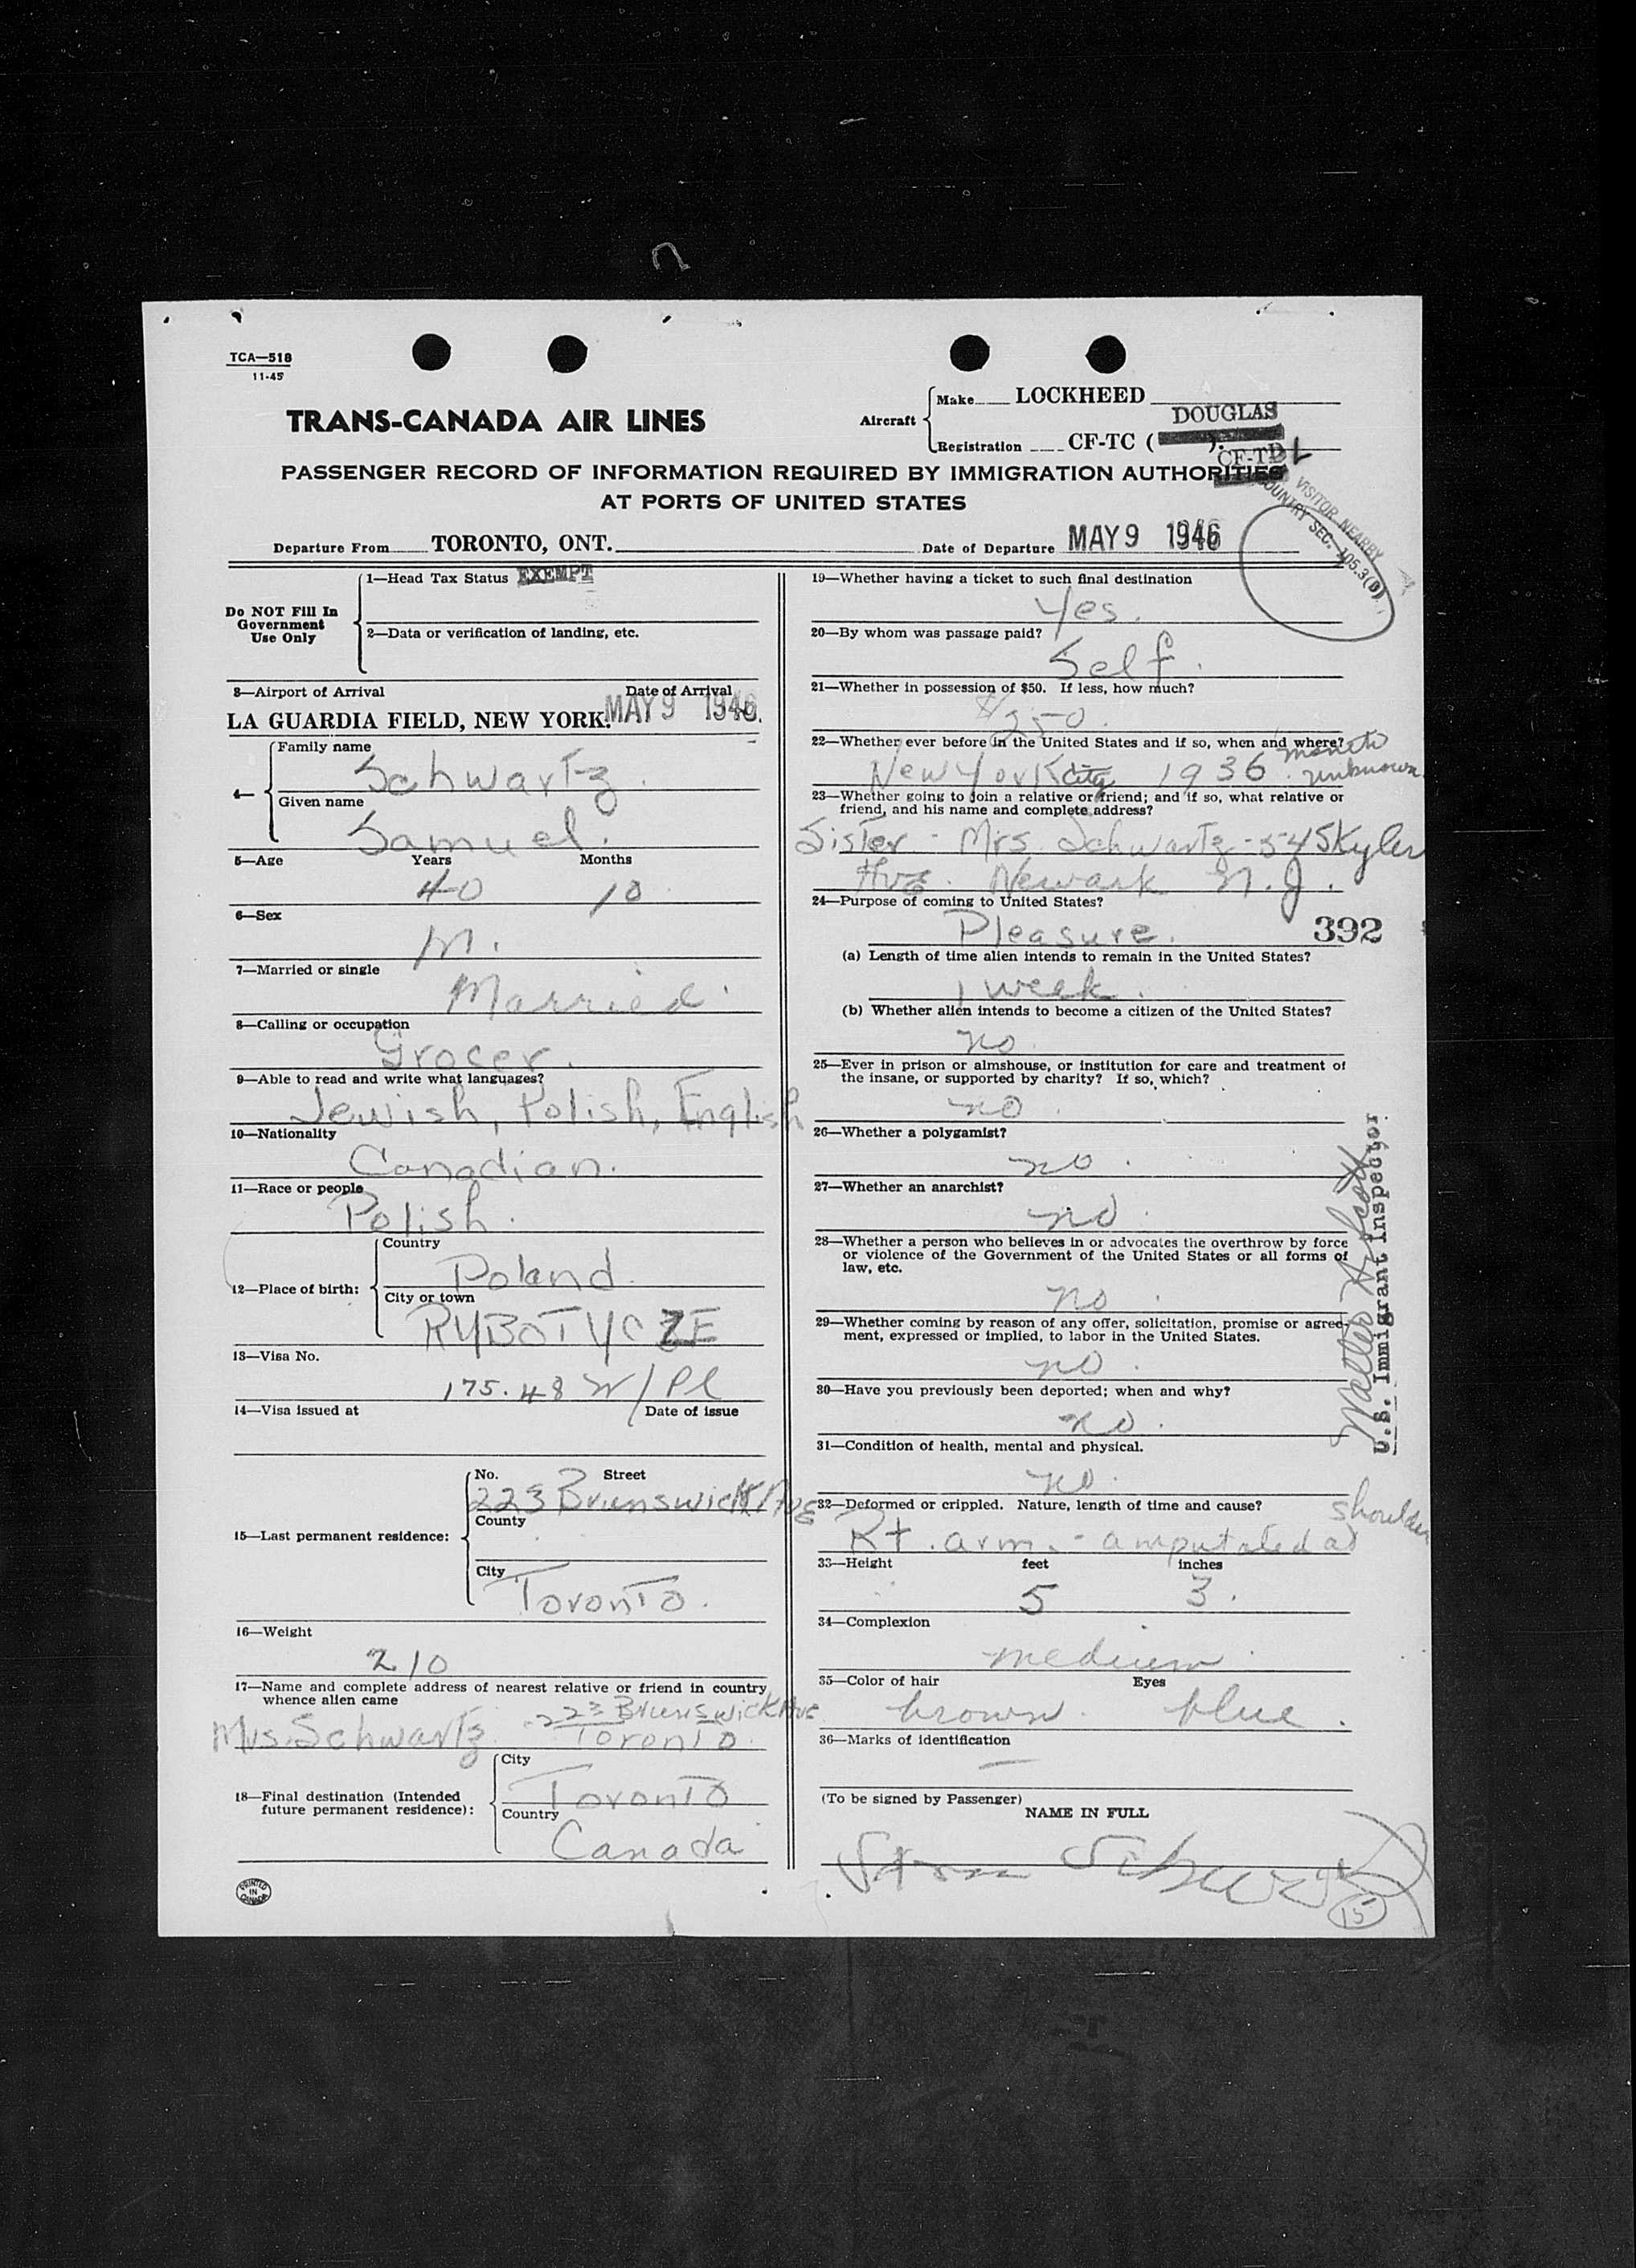 TCA—518
11-45
TRANS-CANADA AIR LINES
Aircraft
Make LOCKHEED
DOUGLAS
Registration CF-TC ( ).
CF-TD L
PASSENGER RECORD OF INFORMATION REQUIRED BY IMMIGRATION AUTHORITIES
AT PORTS OF UNITED STATES
VISITOR NEARBY
COUNTRY SEC. 105.3(B)
Departure From TORONTO, ONT. Date of Departure MAY 9 1946
Do NOT Fill In
Government
Use Only
1—Head Tax Status EXEMPT
2—Data or verification of landing, etc.
3—Airport of Arrival Date of Arrival
LA GUARDIA FIELD, NEW YORK. MAY 9 1946.
4—
Family name
Schwartz.
Given name
Samuel.
5—Age Years Months
40 10
6—Sex
M.
7—Married or single
Married.
8—Calling or occupation
Grocer.
9—Able to read and write what languages?
Jewish, Polish, English
10—Nationality
Canadian.
11—Race or people
Polish.
12—Place of birth:
Country
Poland
City or town
RYBOTYCZE
13—Visa No.
175.48 W/Pl
14—Visa issued at Date of issue
15—Last permanent residence:
No. Street
223 Brunswick Ave
County
City
Toronto.
16—Weight
210
17—Name and complete address of nearest relative or friend in country
whence alien came
223 Brunswick Ave
Mrs. Schwartz Toronto.
18—Final destination (Intended
future permanent residence):
City
Toronto
Country
Canada
PRINTED
IN
CANADA
19—Whether having a ticket to such final destination
Yes.
20—By whom was passage paid?
Self.
21—Whether in possession of $50. If less, how much?
$250.
22—Whether ever before in the United States and if so, when and where?
New York City 1936. month unknown
23—Whether going to join a relative or friend; and if so, what relative or
friend, and his name and complete address?
Sister - Mrs. Schwartz - 54 Skyler
Ave. Newark N.J.
24—Purpose of coming to United States?
Pleasure. 392
(a) Length of time alien intends to remain in the United States?
1 week.
(b) Whether alien intends to become a citizen of the United States?
no.
25—Ever in prison or almshouse, or institution for care and treatment of
the insane, or supported by charity? If so, which?
no.
26—Whether a polygamist?
no.
27—Whether an anarchist?
no.
28—Whether a person who believes in or advocates the overthrow by force
or violence of the Government of the United States or all forms of
law, etc.
no.
29—Whether coming by reason of any offer, solicitation, promise or agree-
ment, expressed or implied, to labor in the United States.
no.
30—Have you previously been deported; when and why?
no.
31—Condition of health, mental and physical.
no.
32—Deformed or crippled. Nature, length of time and cause?
Rt. arm. - amputated at shoulder
33—Height feet inches
5 3.
34—Complexion
medium.
35—Color of hair Eyes
brown. blue.
36—Marks of identification
—
(To be signed by Passenger)
NAME IN FULL
Sam Schwartz
15
Walter A. Scott
U.S. Immigrant Inspector